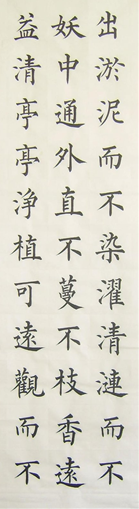 出淤泥而不染濯清漣而不
妖中通外直不蔓不枝香遠
益清亭亭净植可遠觀而不